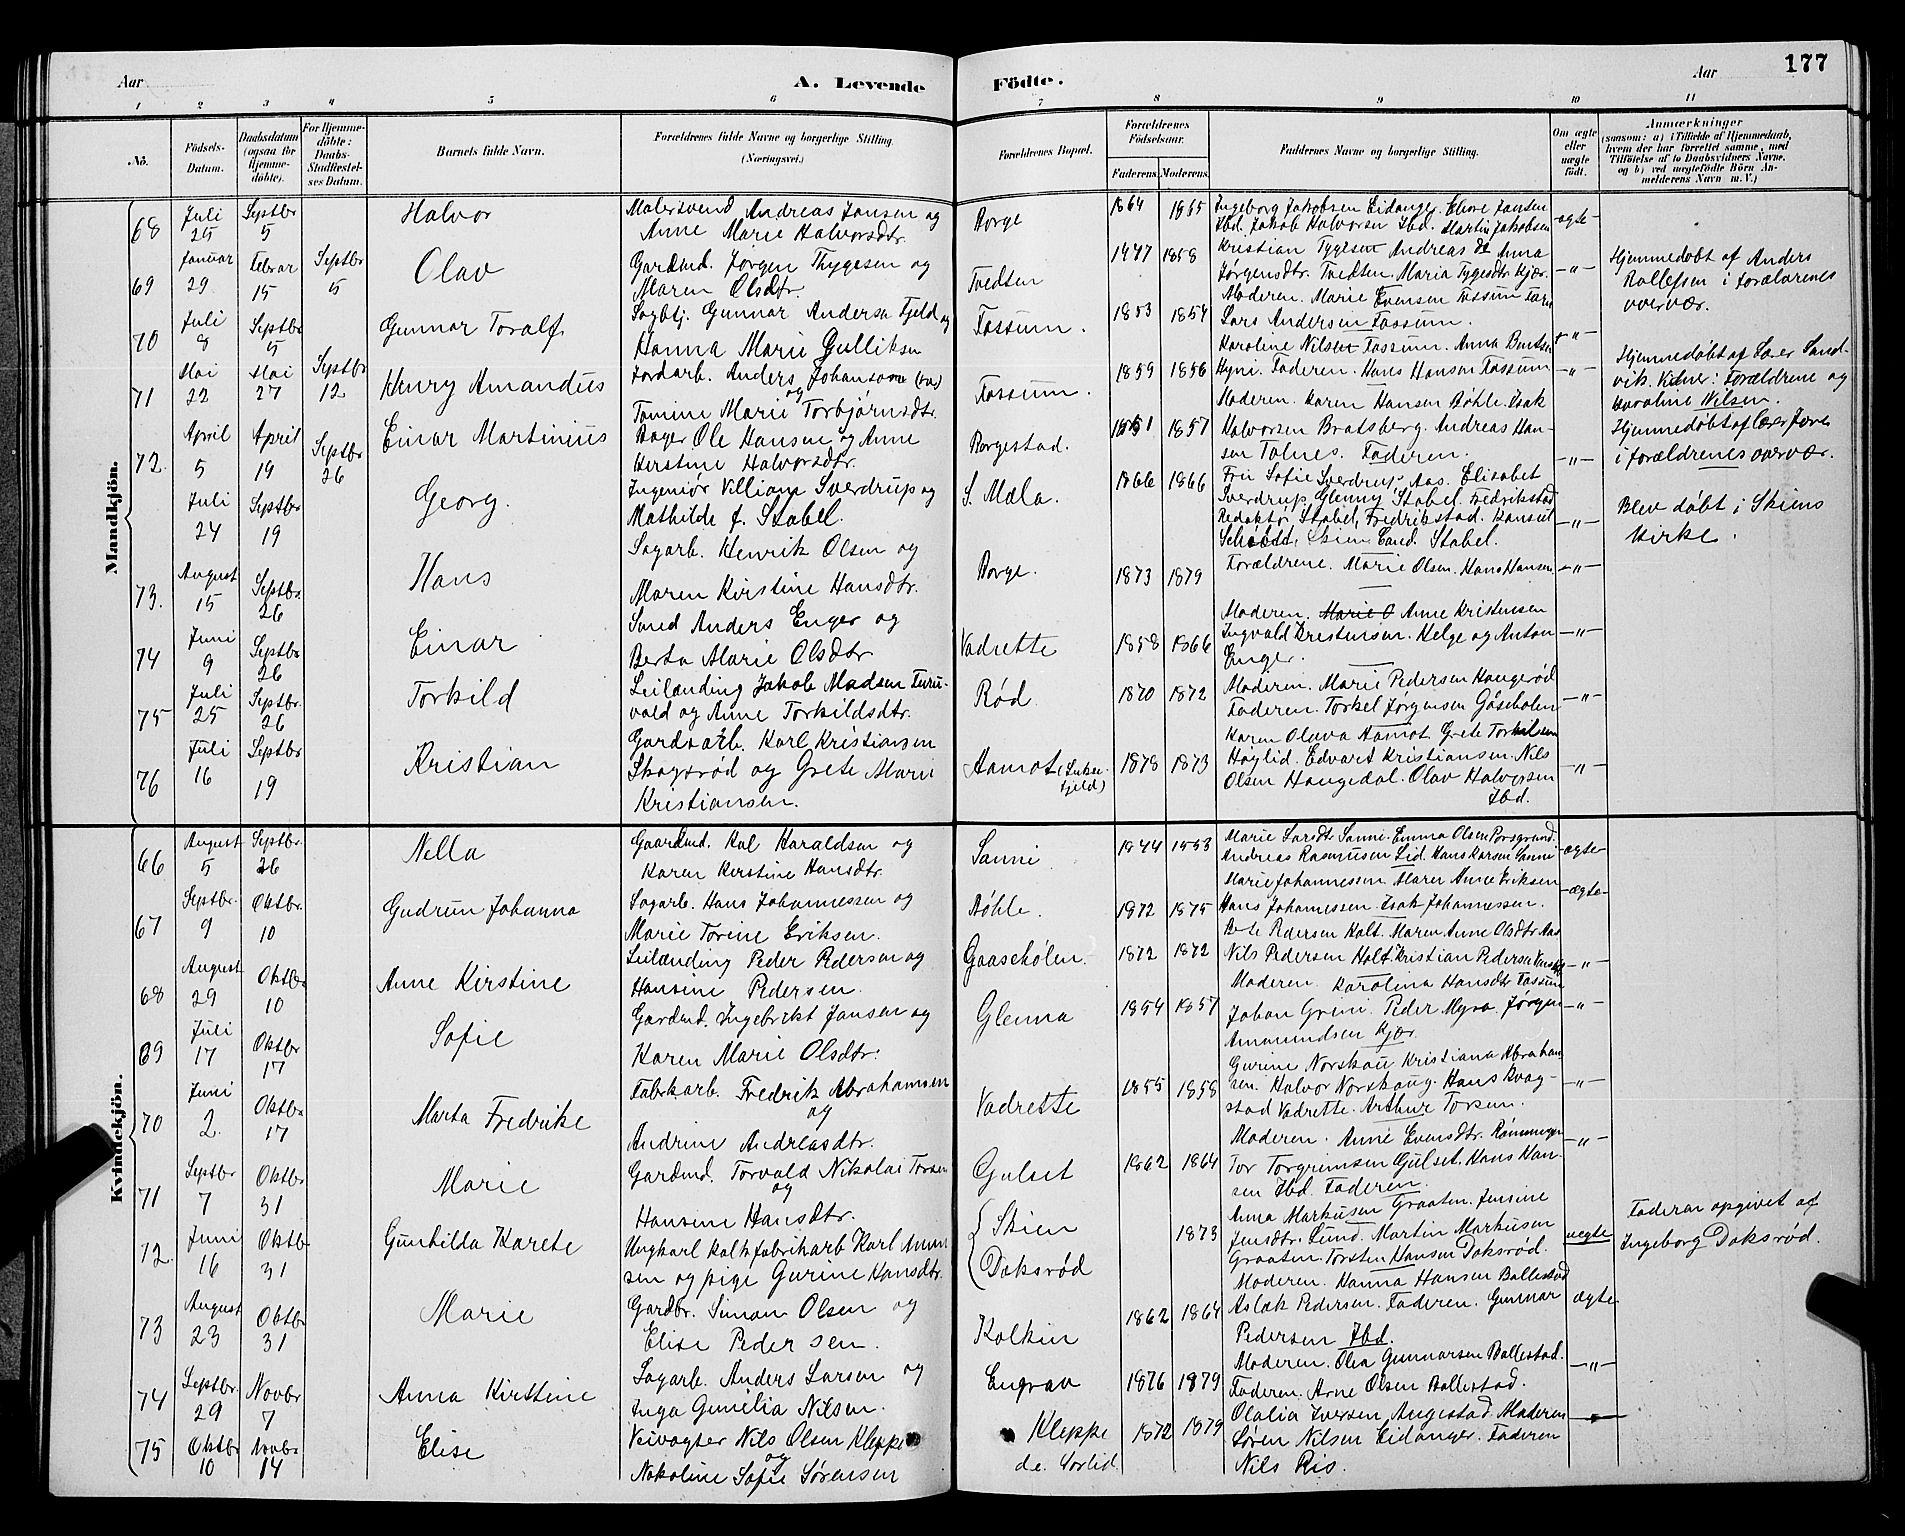 177
Aar
A. Levende
Födte.
Aar
1 2 3 4 5 6 7 8 9 10 11
No.
Födsels-Datum.
Daabsdatum (ogsaa for Hjemme-döbte).
For Hjemme-döbte: Daabs-Stadfæstel-ses Datum.
Barnets fulde Navn.
Forældrenes fulde Navne og borgerlige Stilling. (Næringsvei.)
Forældrenes Bopæl.
Forældrenes Födselsaar.
Faderens. Moderens.
Faddernes Navne og borgerlige Stilling.
Om ægte eller uægte födt.
Anmærkninger
(saasom: a) i Tilfælde af Hjemmedaab, hvem der har forrettet samme, med Tilföielse af to Daabsvidners Navne, og b) ved uægtefödte Börn An-melderens Navn m. V.)
Mandkjön.
68 Juli 25 Septbr 5 Halvor
Malersvend Andreas Jansen og
Anne Marie Halvorsdtr.
Borge 1864 1865
Ingeborg Jakobsen Eidanger. Eline Jansen
Ibd. Jakob Halvorsen Ibd. Martin Jakobsen
ægte
69 Januar 29 Februar 15 Septbr 5 Olav
Gardmd. Jørgen Thygesen og
Maren Olsdtr.
Tvedten 1858
Kristian Tygesen Andreas Anna
Jørgensdtr. Tvedten. Maria Tygesdtr Kjær.
—"—
Hjemmedøbt af Anders
Rollefsen i Forældrenes
overvær.
70 Juli 8 Septbr 5 Gunnar Toralf
Sagbfj. Gunnar Anderse Fjeld og
Hanna Marie Gulliksen
Fossum. 1853 1854
Moderen. Marie Evensen Fossum
Lars Andersen Fossum.
Karoline Nilsen Fossum. Anna
—"—
71 Mai 22 Mai 27 Septbr 12 Henry Amandus
Jordarb. Anders Johanson
og
Tomine Marie Torbjørnsdtr.
Fossum. 1859 1856
Faderen. Hans Hansen Fossum
Moderen. Karen Hansen Bøhle. Isak
—"—
Hjemmedøbt af Lærer Sand-
vik. Vidner: Forældrene og
Karoline Nilsen.
72. April 5 April 19 Septbr 26 Einar Martinius
Bager Ole Hansen og Anne
Kirstine Halvorsdtr.
Borgestad. 1851 1857
Halvorsen Bratsberg. Andreas Han-
sen Tolnes. Faderen.
—"—
Hjemmedøbt af
i forældrenes overvær.
Juli 24 Septbr 19 Georg.
Ingeniør Villiam Sverdrup og
Mathilde f. Stabel.
S. Mæla. 1866 1866
Fru Sofie Sverdrup Aas. Elisabet
Sverdrup, Glenny Stabel, Fredrikstad
Redaktør Stabel, Fredrikstad. Konsul
Skien Cand. Stabel.
—"—
Blev døbt i Skiens
Kirke.
73. August 15 Septbr. 26 Hans
Sagarb. Henrik Olsen og
Maren Kirstine Hansdtr.
Borge. 1873 1879
Forældrene. Marie Olsen. Hans Hansen
—"—
74 Juni 9 Septbr 26 Einar
Smed Anders Enger og
Berta Marie Olsdtr
Vadrette 1858 1866
Moderen. Marie O Anne Kristensen
Ingvald Kristensen. Helge og Anton
Enger.
—"—
75 Juli 25 Septbr 26 Torkild
Leilænding Jakob Madsen Furu-
vald og Anne Torkildsdtr.
Rød. 1870 1872
Moderen. Marie Pedersen Haugerød
Faderen. Torkel Jørgensen Gåseholen
—"—
76 Juli 16 Septbr 19 Kristian
Gardarb. Karl Kristiansen
Skogsrød og Grete Marie
Kristiansen.
Aamot (Lukse-
fjeld) 1878 1873
Karen Olava Aamot Grete Torkelsen
Høglid. Edvart Kristiansen. Nils
Olsen Haugedal. Olav Halvorsen
Ibd.
—"—
Kvindekjön.
66 August 5 Septbr. 26 Nella
Gaardmd. Hal Haraldsen og
Karen Kirstine Hansdtr.
Sanni 1844 1853
Marie Larsdtr Sanni. Emma Olsen Porsgrund.
Andreas Rasmussen Lid. Hans Larsen Sanni
ægte
67 Septbr. 9 Oktbr. 10 Gudrun Johanna
Sagarb. Hans Johannessen og
Marie Torine Eriksen.
Bøhle. 1872 1875
Marie Johannessen. Maren Anne Eriksen
Hans Johannessen. Isak Johannessen.
ægte
68 August 29 Oktbr 10 Anne Kirstine
Leilænding Peder Pedersen og
Hansine Pedersen.
Gaaseholen. 1872 1872
Pedersen Holt. Maren Anne Olsdtr Aas
Nils Pedersen Holt. Kristian Pedersen
—"—
69 Juli 17 Oktbr 17 Sofie
Gardmd. Ingebrikt Jansen og
Karen Marie Olsdtr:
Glenna 1854 1857
Moderen. Karolina Hansdtr Fossum
Johan Grini. Peder Myra. Jørgen
Ammundsen Kjær.
—"—
70 Juni 2. Oktbr 17 Marta Fredrike
Fabrkarb. Fredrik Abrahamsen
og
Andrine Andreasdtr.
Vadrette 1855 1858
Gurine Norskau Kristiana Abraham
sen. Halvor Norskaug. Hans Kvag-
stad Vadrette. Arthur Torsen.
—"—
71 Septbr 7 Oktbr 31 Marie
Gardmd. Torvald Nikolai Torsen
og
Hansine Hansdtr.
Gulset 1862 1864
Moderen. Anne Evensdtr.
Tor Torgrimsen Gulset. Hans Han-
sen Ibd. Faderen.
—"—
72. Juni 16 Oktbr 31 Gunhilda Karete
Ungkarl kalkfabrikarb Karl
sen og pige Gurine Hansdtr.
Skien
Doksrød 1873
Anna Markusen Graaten. Jensine
Jensdtr. Lund. Martin Markusen
Graaten. Torsten Hansen Doksrød.
uegte
Faderen opgivet af
Ingeborg Doksrød.
73 August 23 Oktbr 31 Marie
Gardbr. Simon Olsen og
Elise Pedersen.
Kolkin 1862 1864
Moderen. Hanna Hansen Ballestad
Aslak Pedersen. Faderen. Gunnar
Pedersen Ibd.
ægte
74 Septbr. 29 Novbr 7 Anna Kirstine
Sagarb. Anders Larsen og
Inga Gunilia Nilsen.
Engrav 1876 1879
Moderen. Olea Gunnarsen Ballestad.
Faderen. Arne Olsen Ballestad.
—"—
75 Oktbr 10 Novbr 14 Elise
Veivogter Nils Olsen Kleppe
og
Nakoline Sofie Sørensen
Kleppe
1872 1879
Olalia Iversen Augestad. Moderen
Søren Nilsen Eidanger. Faderen
Nils Ris.